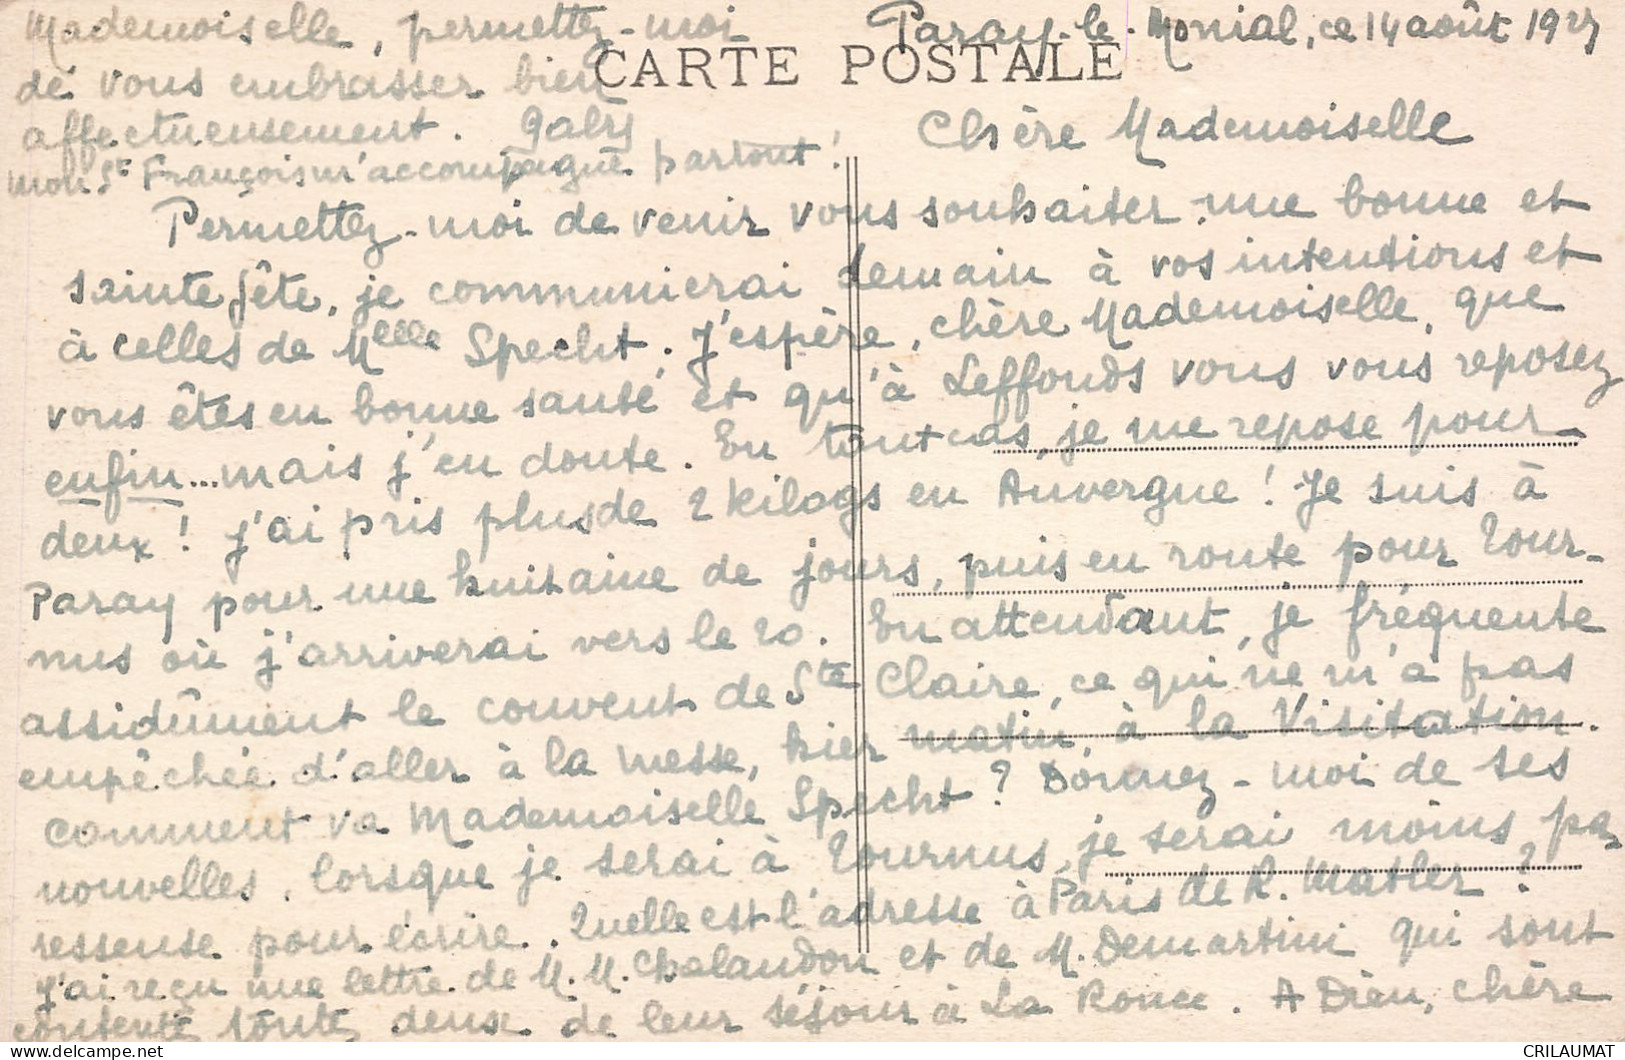 Paray-le-Monial, ce 14 août 192
CARTE POSTALE
Chère Mademoiselle
Permettez-moi de venir vous souhaiter une bonne et
sainte fête, je communierai demain à vos intentions et
à celles de Melle Specht. J'espère, chère Mademoiselle, que
vous êtes en bonne santé et qu'à Leffonds vous vous reposez
enfin... mais j'en doute. En tout cas, je me repose pour
deux! J'ai pris plus de 2 kilogs en Auvergne! Je suis à
Paray pour une huitaine de jours, puis en route pour Tour-
nus où j'arriverai vers le 20. En attendant, je fréquente
assidûment le couvent de Ste Claire, ce qui ne m'a pas
empêchée d'aller à la messe, hier matin, à la Visitation.
Comment va Mademoiselle Specht? Donnez-moi de ses
nouvelles, lorsque je serai à Tournus, je serai moins pa-
resseuse pour écrire. Quelle est l'adresse à Paris de R. ?
J'ai reçu une lettre de M. M. Chalandon et de M. Demartini qui sont
contents tous deux de leur séjour à La . A Dieu, chère
Mademoiselle, permettez-moi
de vous embrasser bien
affectueusement. Gaby
Mon St François m'accompagne partout!
CRILAUMAT